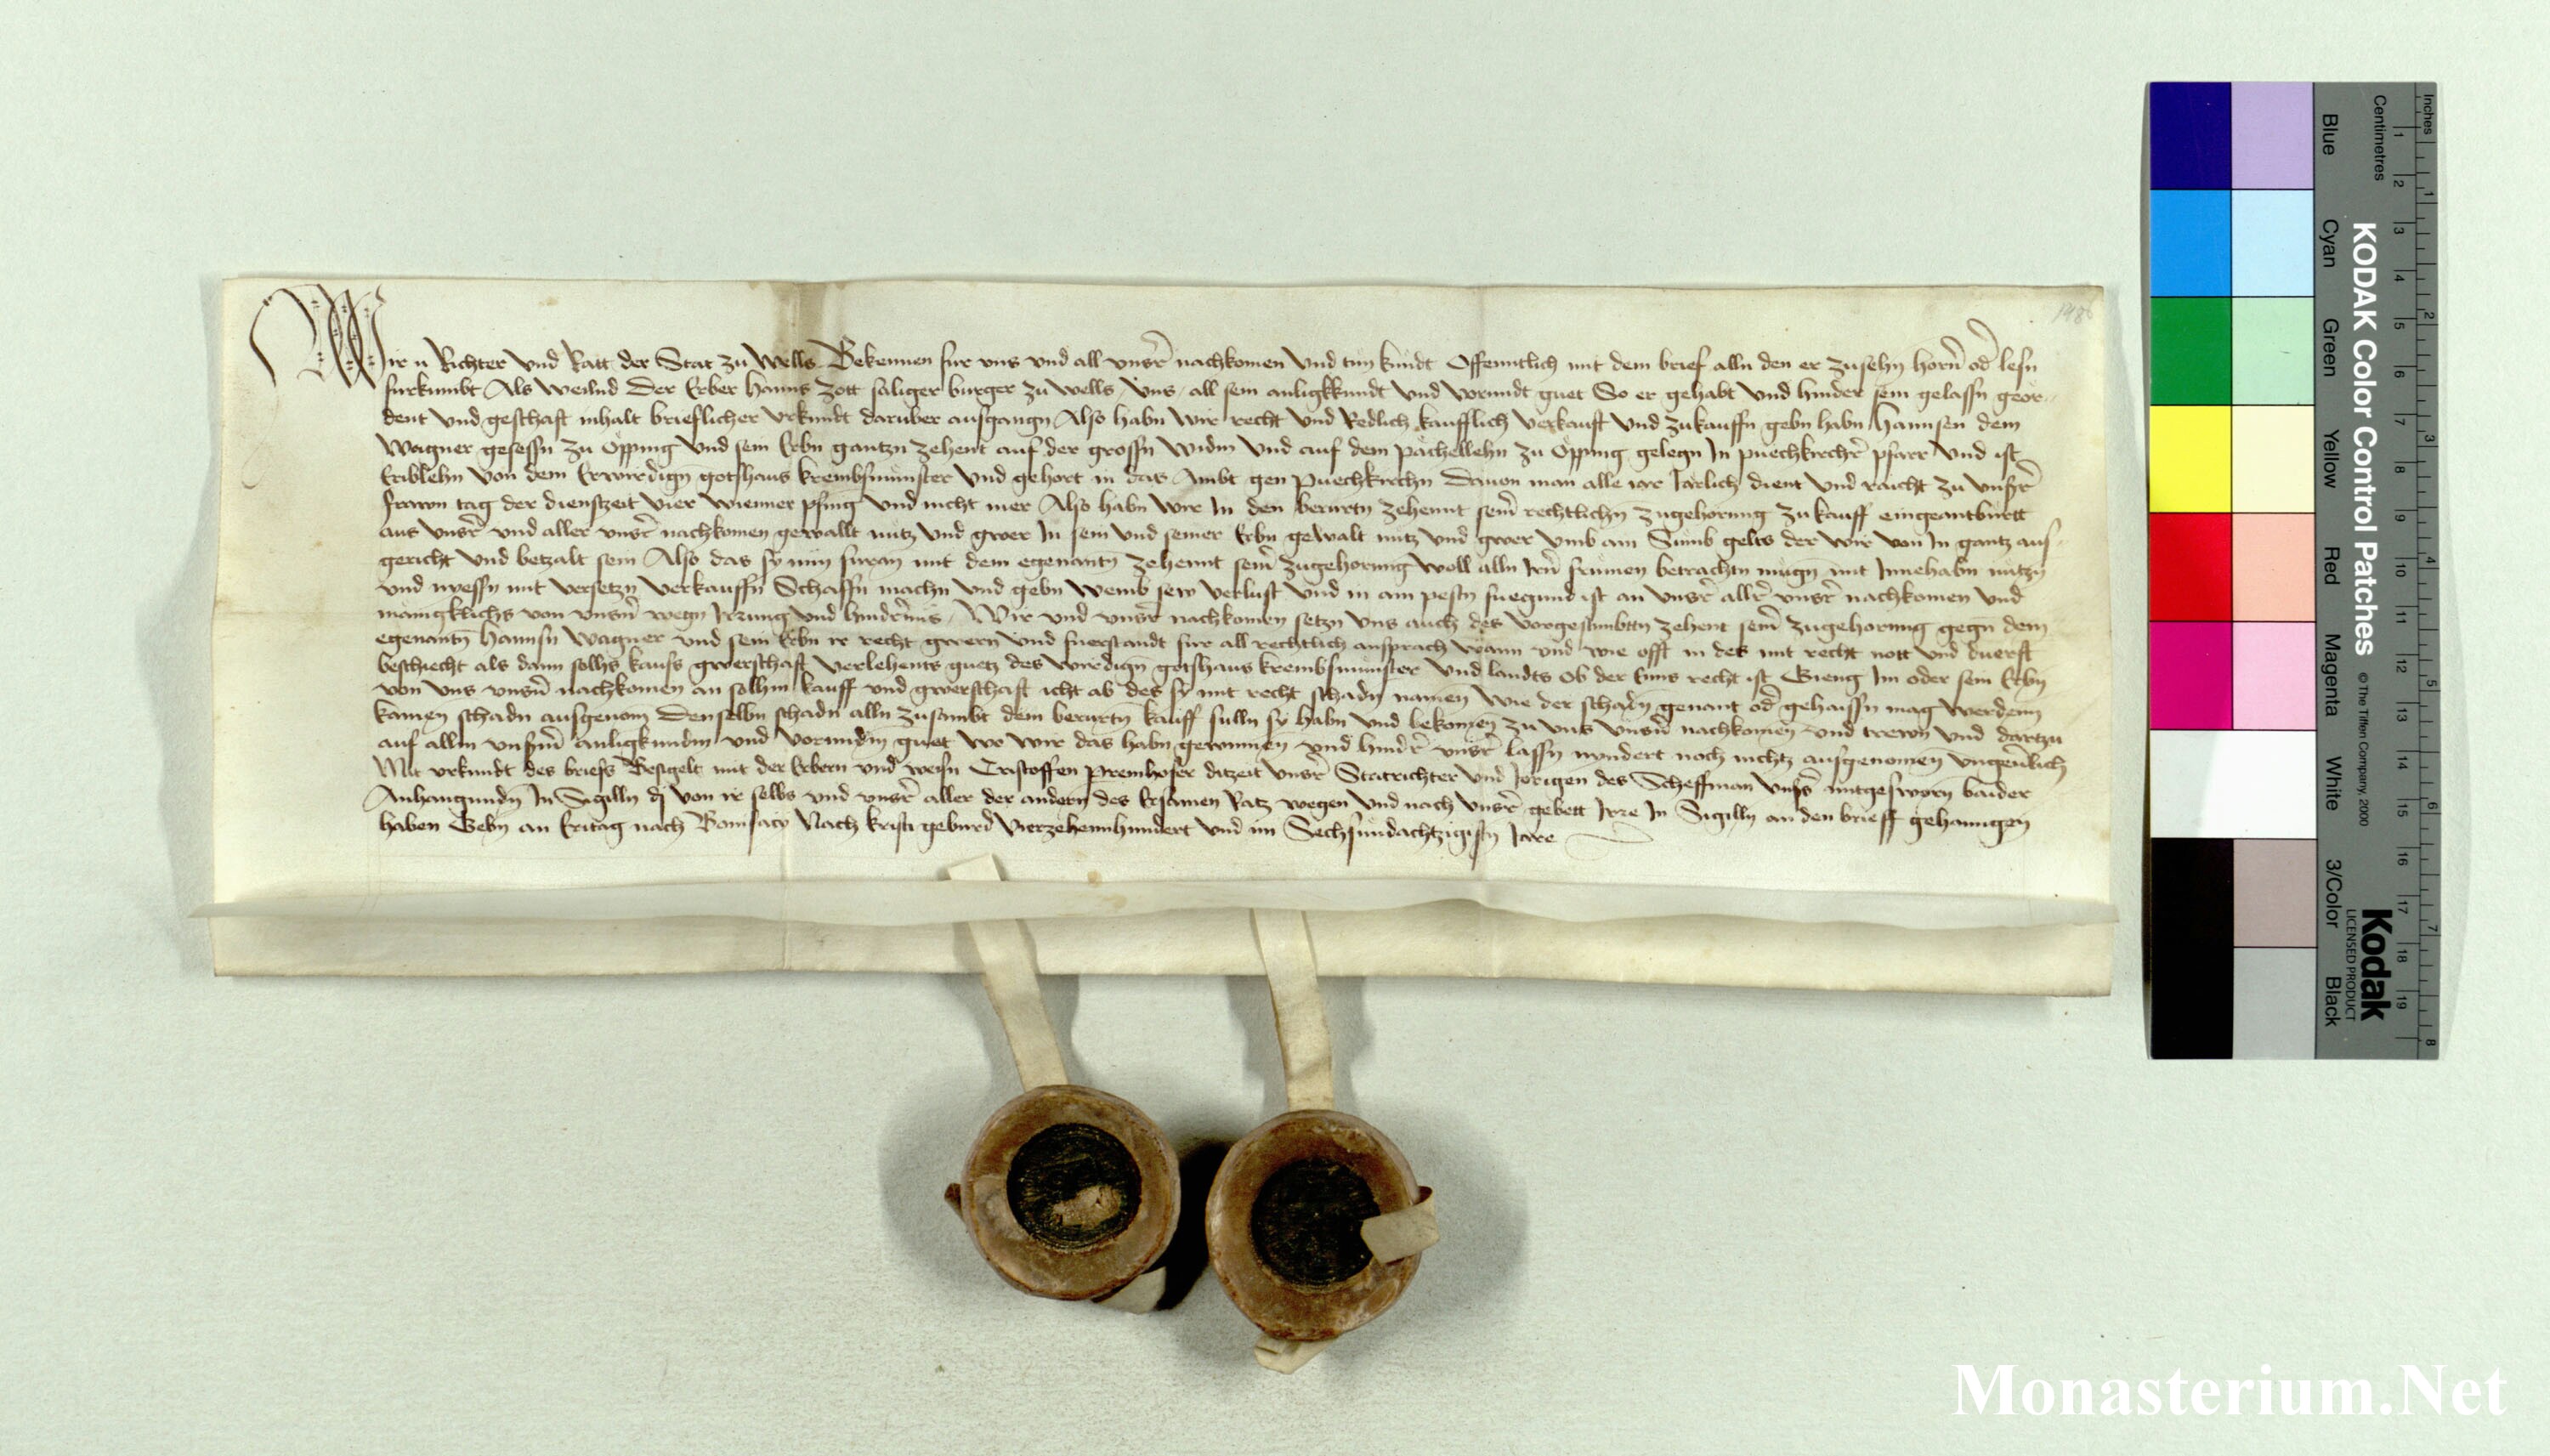 1486
Wir n Richter vnd Ratt der Stat zu Wells Bekennen fur vns vnd all vnsr̄ nachkomen vnd tun kundt Offenntlich mit dem brief alln den er zusehn horn̄ od̄ lesn
furkumbt Als weilnd Der Erber Hanns Zott saliger burger zu Wells vns all sein anligkkundt vnd vrundt guet So er gehabt vnd hinder sein gelassn geor-
dent vnd geschaft inhalt brieflicher vrkundt daruber ausgangn Also habn wir recht vnd Redlich kaufflich verkauft vnd zukauffn gebn habn Hannsen dem
Wagner gesessn zu Öpping vnd sein Erbn gantzn zehent auf der grossn widm vnd auf dem pachellehn zu Öpping gelegn In puechkirchr̄ pfarr vnd ist
Erblehn von dem Erwirdign̄ gotshaus krembsmunster vnd gehort in das Ambt gen Puechkirchn Dauon man alle iar Iarlich dient vnd raicht zu vnsr̄
frawn tag der dienstzeit vier wienner pfing vnd nicht mer Also habn wir In den berurtn zehennt sein̄ rechtlichn zugehorung zu kauff eingeantburtt
aus vnsr̄ vnd aller vnsr̄ nachkomen gewallt nutz vnd gwer In sein vnd seiner Erbn gewalt nutz vnd gwer vmb ain Sumb gelts der wir von In gantz aus-
gericht vnd betzalt sein Also das sy nun furan mit dem egenantn̄ zehennt sein̄ zugehorung woll alln Irn̄ frumen betrachtn mugn mit Innehabn nutzn
vnd nyessn mit versetzn verkauffn Schaffn machn vnd gebn wemb sew verlust vnd in am pestn fuegund ist an vnsr̄ allr̄ vnsr̄ nachkomen vnd
manigklichs von vnsn̄ wegn Irrung vnd hindr̄nus Wir vnd vnsr̄ nachkomen setzn vns auch des vorgestimbttn zehent sein̄ zugehorung gegn dem
egenantn̄ Hannsn Wagner vnd sein Erbn ir recht gwern vnd fuerstandt fur all rechtlich ansprach wann vnd wie offt in des mit recht nott vnd duerft
beschiecht als dann sollhs kaufs gwerschaft verlehents guetz des wirdign gotshaus krembsmunster vnd landts ob der Enns recht ist Gieng Im oder sein Erbn
von vns vnsn̄ nachkomen an solhm kauff vnd gwerschaft icht ab des sy mit recht schadn namen wie der schadn genant od̄ gehaissn mag werdenn
kainen schadn ausgenom̄ Denselbn schadn alln zusambt dem berurtn̄ kauff sulln sy habn vnd bekomen zu vns vnsn̄ nachkomen vnd trewn vnd dartzu
auf allm vnsm̄ anligkundm vnd vorundm guet wo wir das habn gewunnen vnd hindr̄ vnsr̄ lassn nyndert noch nichtz ausgenomen vngeu̅lich
Mit vrkundt des briefs Besigelt mit der Erbern vnd weisn Cristoffen Premhofer ditzeit vnsr̄ Statrichter vnd Jorigen des Scheffman vnss̄ mitgesworn baider
Anhangundn In Sigilln dj von ir selbs vnd vnsr̄ aller der andern des Ersamen Ratz wegen vnd nach vnsr̄ gebett Irre In Sigilln an den brieff gehanngen
haben Gebn an Eritag nach Bonifacy Nach kristi geburd Vierzehennhundert vnd im Sechsundachtzigistn Jare
KODAK Color Control Patches
© The Tiffen Company, 2000
Kodak
LICENSED PRODUCT
Inches 1 2 3 4 5 6 7 8
Centimetres 1 2 3 4 5 6 7 8 9 10 11 12 13 14 15 16 17 18 19
Blue Cyan Green Yellow Red Magenta White 3/Color Black
Monasterium.Net